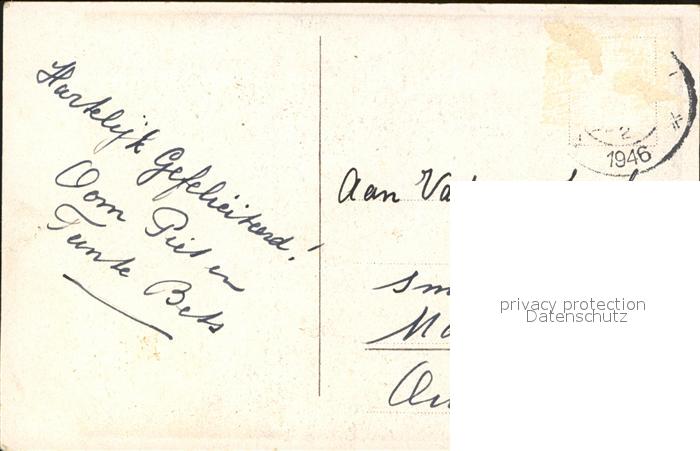 Hartelijk Gefeliciteerd!
Oom Piet en
Tante Bets
1946
Aan
privacy protection
Datenschutz